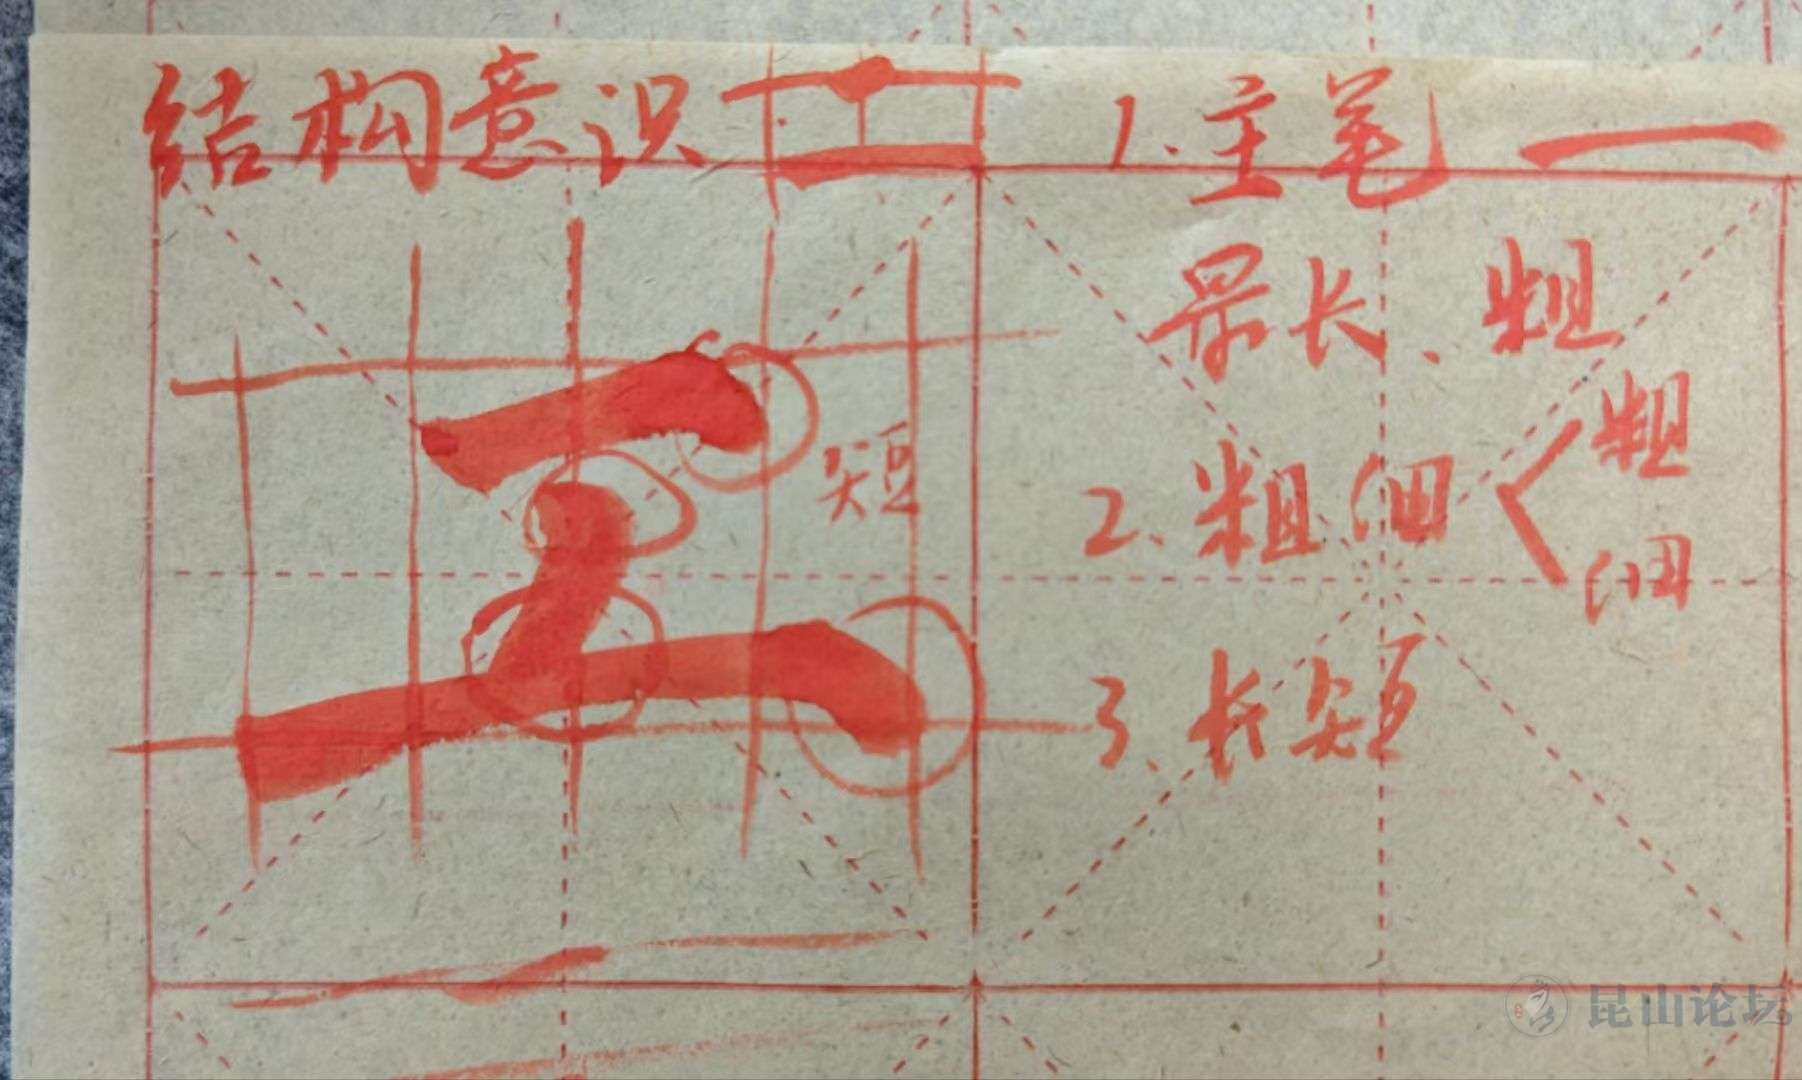 结构意识
工
短
1.主笔 一
最长、粗
2.粗细
粗
细
3.长短
昆山论坛